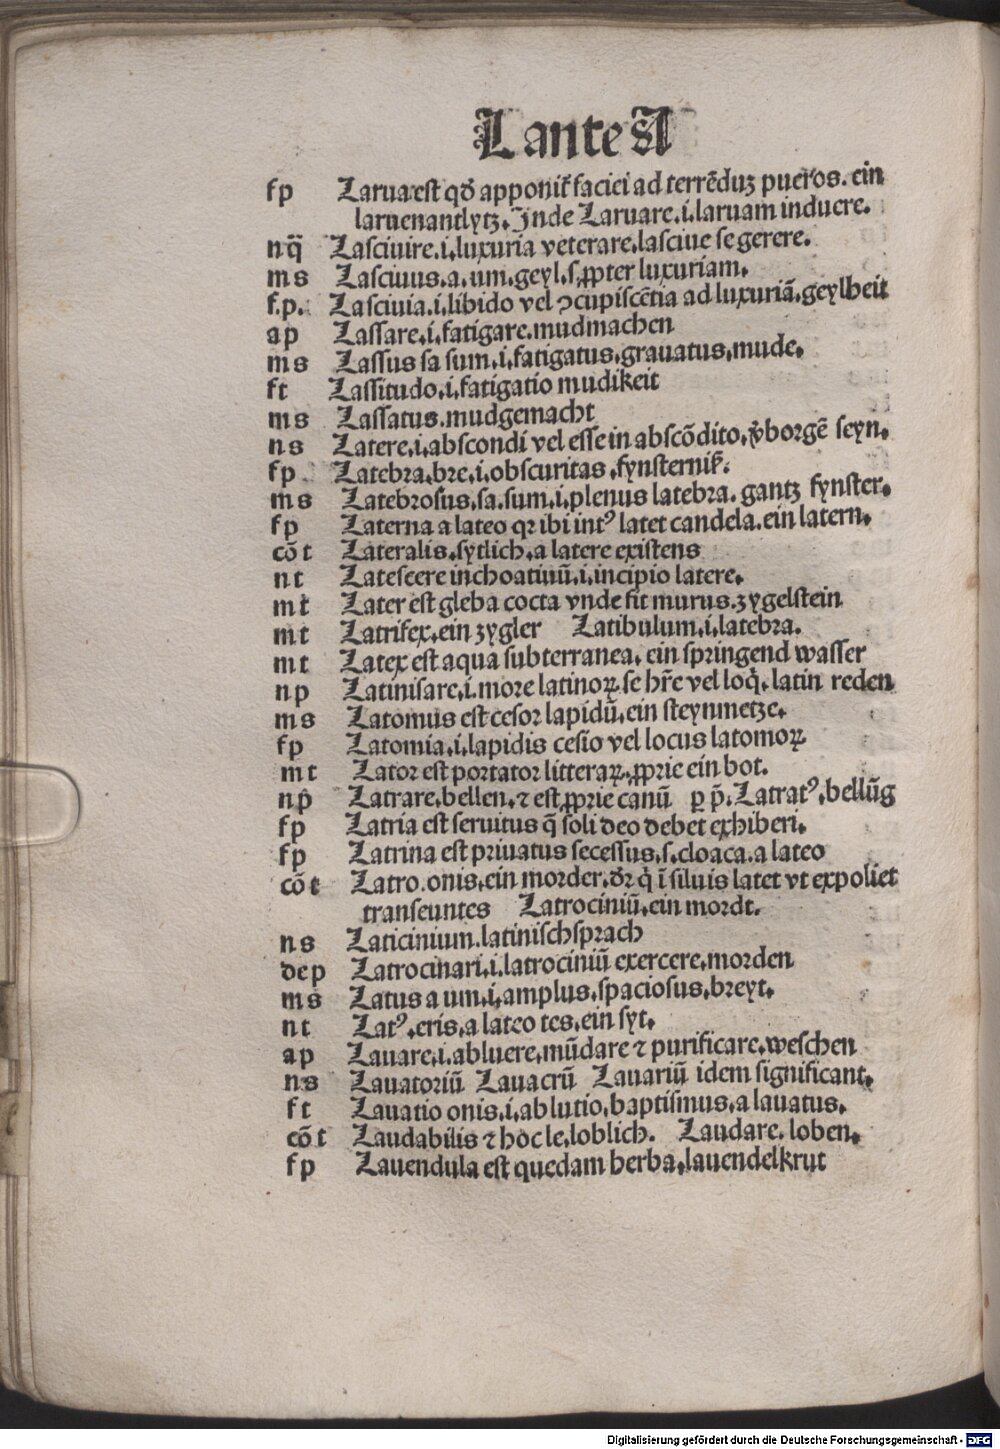 L ante A
fp Larua est qď apponiť faciei ad terrēduʒ pueros. ein
laruenantlytz. Inde Laruare .i. laruam induere.
nq̈ Lasciuire .i. luxuria veterare, lasciue se gerere.
ms Lasciuus .a. um. geyl .s. ꝓpter luxuriam.
f.p. Lasciuia .i. libido vel ↄcupiscētia ad luxuriā. geylheit
ap Lassare .i. fatigare. mudmachen
ms Lassus sa sum .i. fatigatus, grauatus, mude.
ft Lassitudo .i. fatigatio mudikeit
ms Lassatus. mudgemacht
ns Latere .i. abscondi vel esse in abscōdito, v̄borgē seyn.
fp Latebra, bre .i. obscuritas, fynsternik̄.
ms Latebrosus, sa. sum .i. plenus latebra. gantz fynster.
fp Laterna a lateo qꝛ ibi intꝰ latet candela. ein latern.
cō t Lateralis, sytlich, a latere existens
nt Latescere inchoatiuū .i. incipio latere.
mt Later est gleba cocta vnde fit murus. zygelstein
mt Latrifex, ein zygler Latibulum .i. latebra.
mt Latex est aqua subterranea, ein springend wasser
np Latinisare .i. more latinoꝝ se hr̄e vel loq̇, latin reden
ms Latomus est cesor lapidū, ein steynmetze.
fp Latomia .i. lapidis cesio vel locus latomoꝝ
mt Lator est portator litteraꝝ, ꝓprie ein bot.
np̄ Latrare, bellen, ⁊ est ꝓprie canū ꝑ p̄. Latratꝰ, bellūg
fp Latria est seruitus q̄ soli deo debet exhiberi.
fp Latrina est priuatus secessus .s. cloaca. a lateo
cō t Latro. onis, ein morder, dꝛ q̇ ī siluis latet vt expoliet
transeuntes Latrociniū, ein mordt.
ns Laticinium. latinischsprach
dep Latrocinari .i. latrociniū exercere, morden
ms Latus a um .i. amplus, spaciosus, breyt.
nt Latꝰ, eris, a lateo tes, ein syt.
ap Lauare .i. abluere, mūdare ⁊ purificare, weschen
ns Lauatoriū Lauacrū Lauariū idem significant.
ft Lauatio onis .i. ablutio, baptismus, a lauatus.
cō t Laudabilis ⁊ hoc le, loblich. Laudare. loben.
fp Lauendula est quedam herba, lauendelkrut
Digitalisierung gefördert durch die Deutsche Forschungsgemeinschaft - DFG